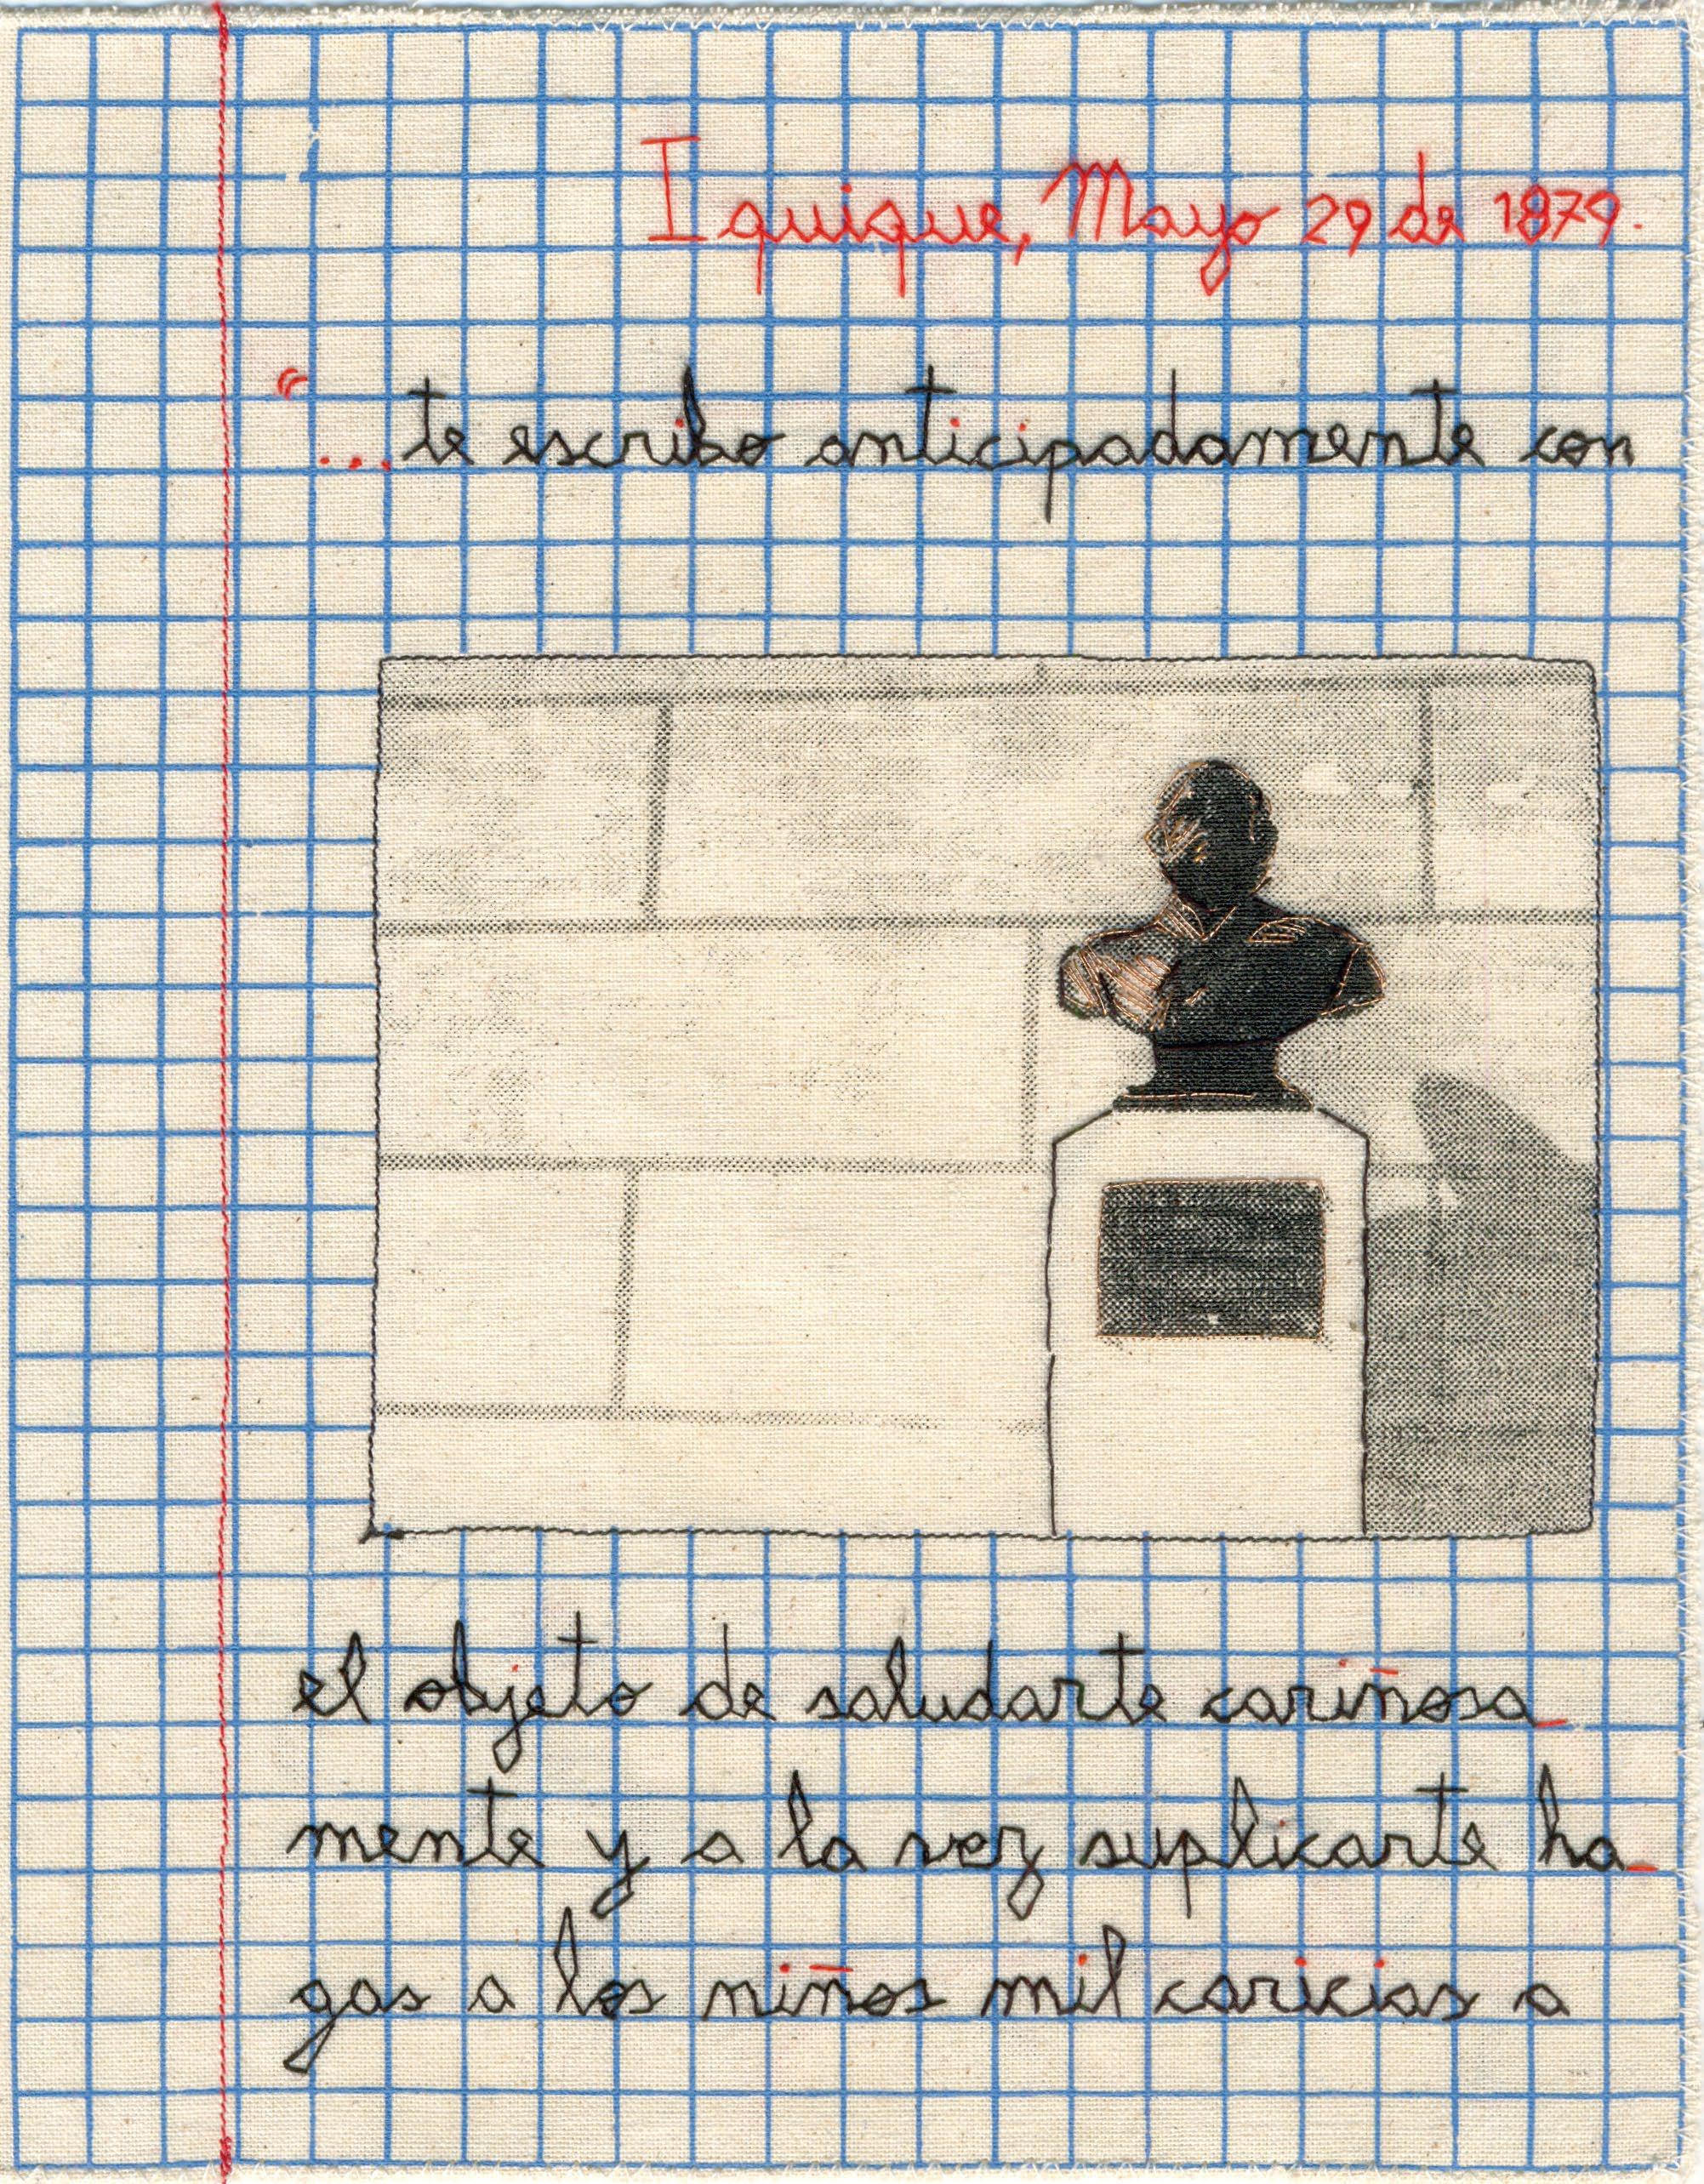 Iquique, Mayo 29 de 1879.
“...te escribo anticipadamente con
el objeto de saludarte cariñosa_
mente y a la vez suplicarte ha_
gas a los niños mil caricias a